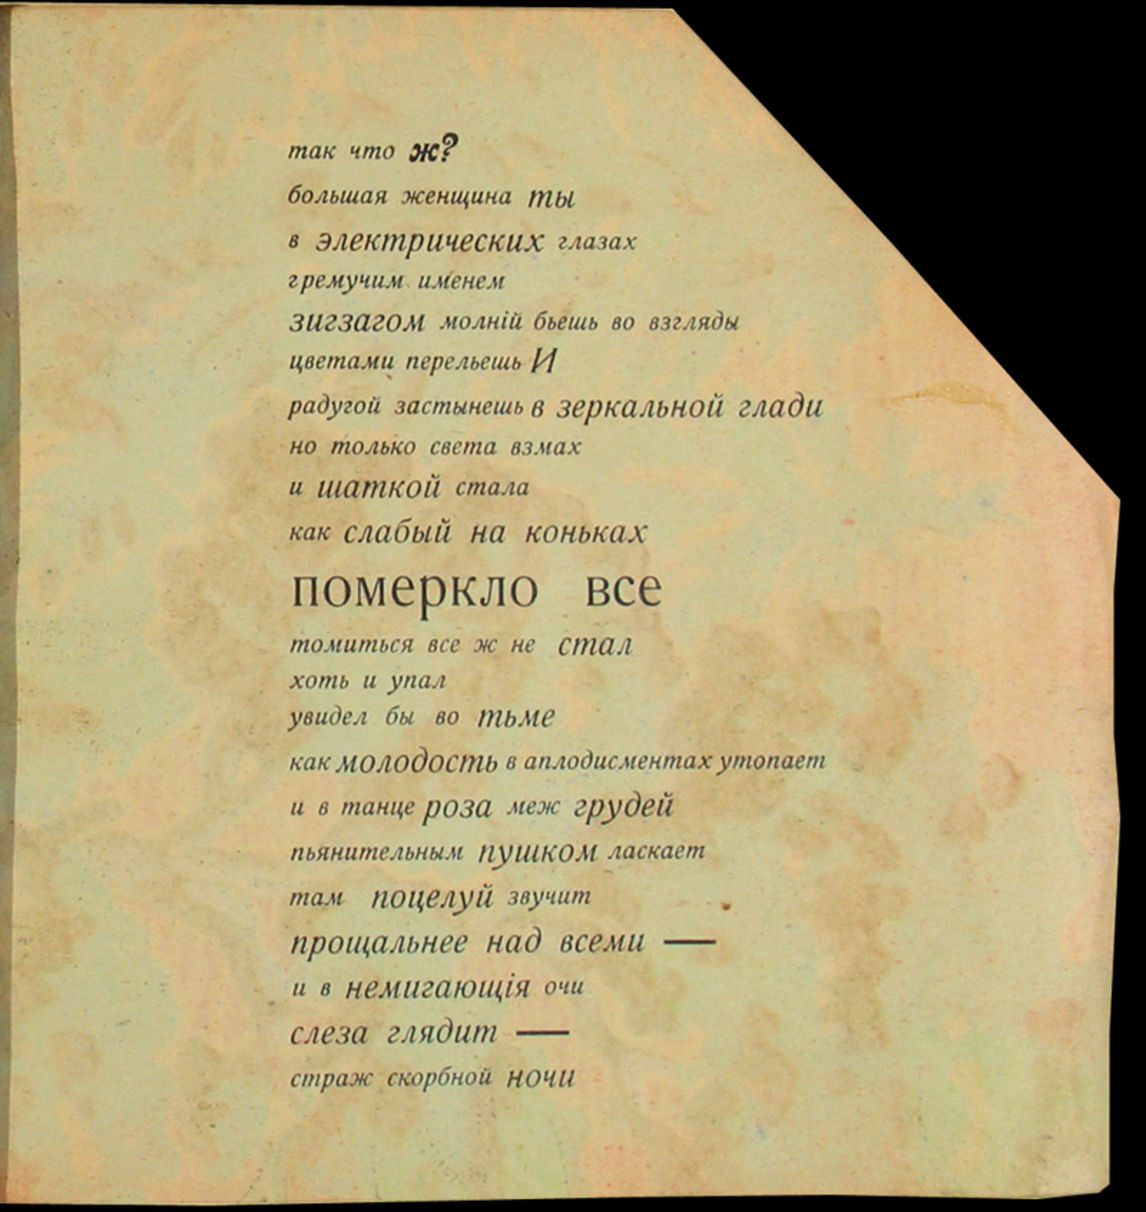 так что ж?
большая женщина ты
в электрических глазах
гремучим именем
зигзагом молнiй бьешь во взгляды
цветами перельешь И
радугой застынешь в зеркальной глади
но только света взмах
и шаткой стала
как слабый на коньках
померкло все
томиться все ж не стал
хоть и упал
увидел бы во тьме
как молодость в аплодисментах утопает
и в танце роза меж грудей
пьянительным пушком ласкает
там поцелуй звучит
прощальнее над всеми —
и в немигающiя очи
слеза глядит —
страж скорбной ночи